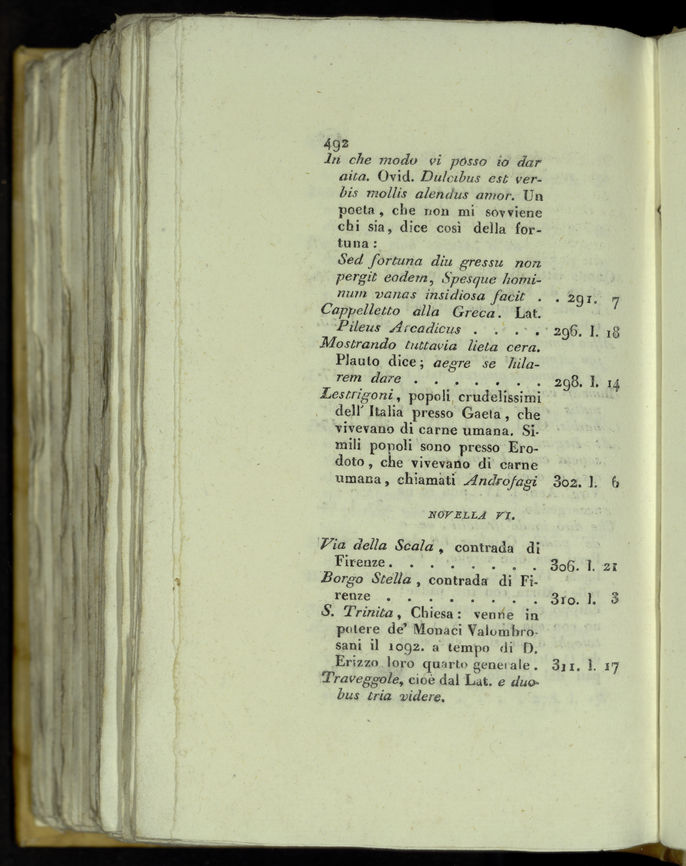 492
In che modo vi posso io dar
aita. Ovid. Dulcibus est ver-
bis mollis alendus amor. Un
poeta, che non mi sovviene
chi sia, dice così della for-
tuna:
Sed fortuna diu gressu non
pergit eodem, Spesque homi-
num vanas insidiosa facit . . 291. 7
Cappelletto alla Greca. Lat.
Pileus Arcadicus . . . . 296. l. 18
Mostrando tuttavia lieta cera.
Plauto dice; aegre se hila-
rem dare . . . . . . . 298. l. 14
Lestrigoni, popoli crudelissimi
dell' Italia presso Gaeta, che
vivevano di carne umana. Si-
mili popoli sono presso Ero-
doto, che vivevano di carne
umana, chiamati Androfagi 302. l. 6
NOVELLA VI.
Via della Scala, contrada di
Firenze. . . . . . . . . 306. l. 21
Borgo Stella, contrada di Fi-
renze . . . . . . . . 310. l. 3
S. Trinita, Chiesa: venne in
potere de' Monaci Valombro-
sani il 1092. a tempo di D.
Erizzo loro quarto generale. 311. l. 17
Traveggole, cioè dal Lat. e duo-
bus tria videre.